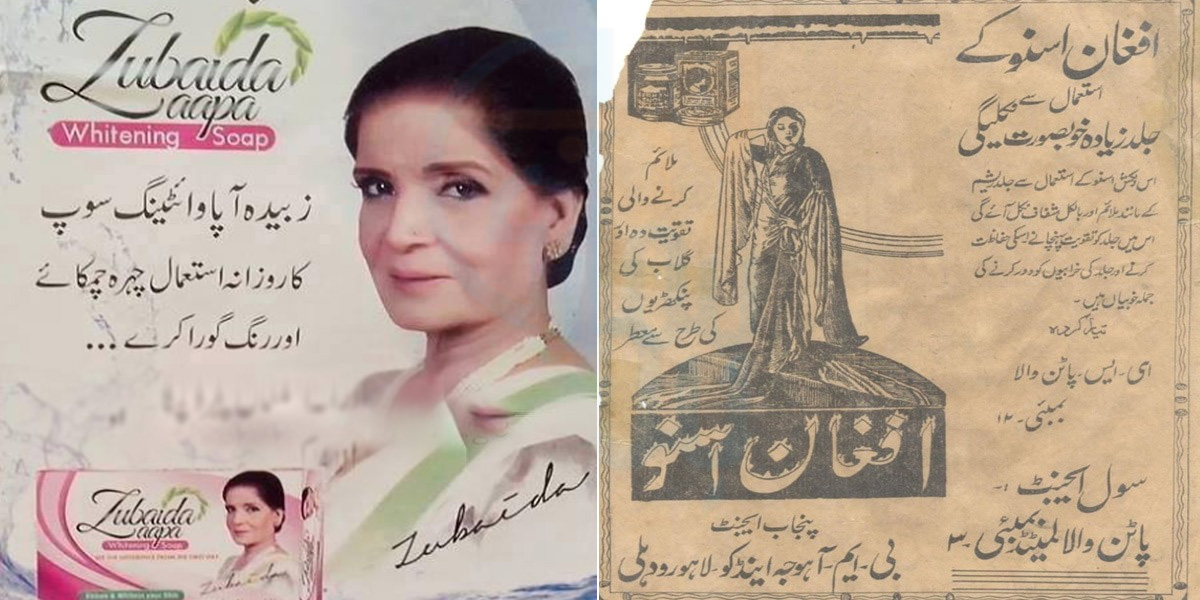 Zubaida
aapa
Whitening Soap
زبیدہ آپا وائٹینگ سوپ
کا روزانہ استعمال چہرہ چمکائے
اور رنگ گورا کرے ...
Zubaida
aapa
Whitening Soap
SEE THE DIFFERENCE FROM THE FIRST USE
Zubaida
Zubaida
افغان اسنو کے
استعمال سے
جلد زیادہ خوبصورت نکلیگی
اس دلکش اسنو کے استعمال سے جلد ریشم
کے مانند ملائم اور بالکل شفاف نکل آئے گی
اس میں جلد کو تقویت پہنچانے اسکی حفاظت
کرنے اور جلد کی خرابیوں کو دور کرنے کی
جملہ خوبیاں ہیں۔
تیار کردہ
ای۔ ایس۔ پاٹن والا
بمبئی۔ ۱۲
سول ایجنٹ :-
پاٹن والا لمیٹڈ بمبئی ۳۔
ملائم
کرنے والی
تقویت دہ اور
گلاب کی
پنکھڑیوں
کی طرح سے معطر
افغان اسنو
پنجاب ایجنٹ
بی۔ ایم۔ آہوجہ اینڈ کو۔ لاہور و دہلی